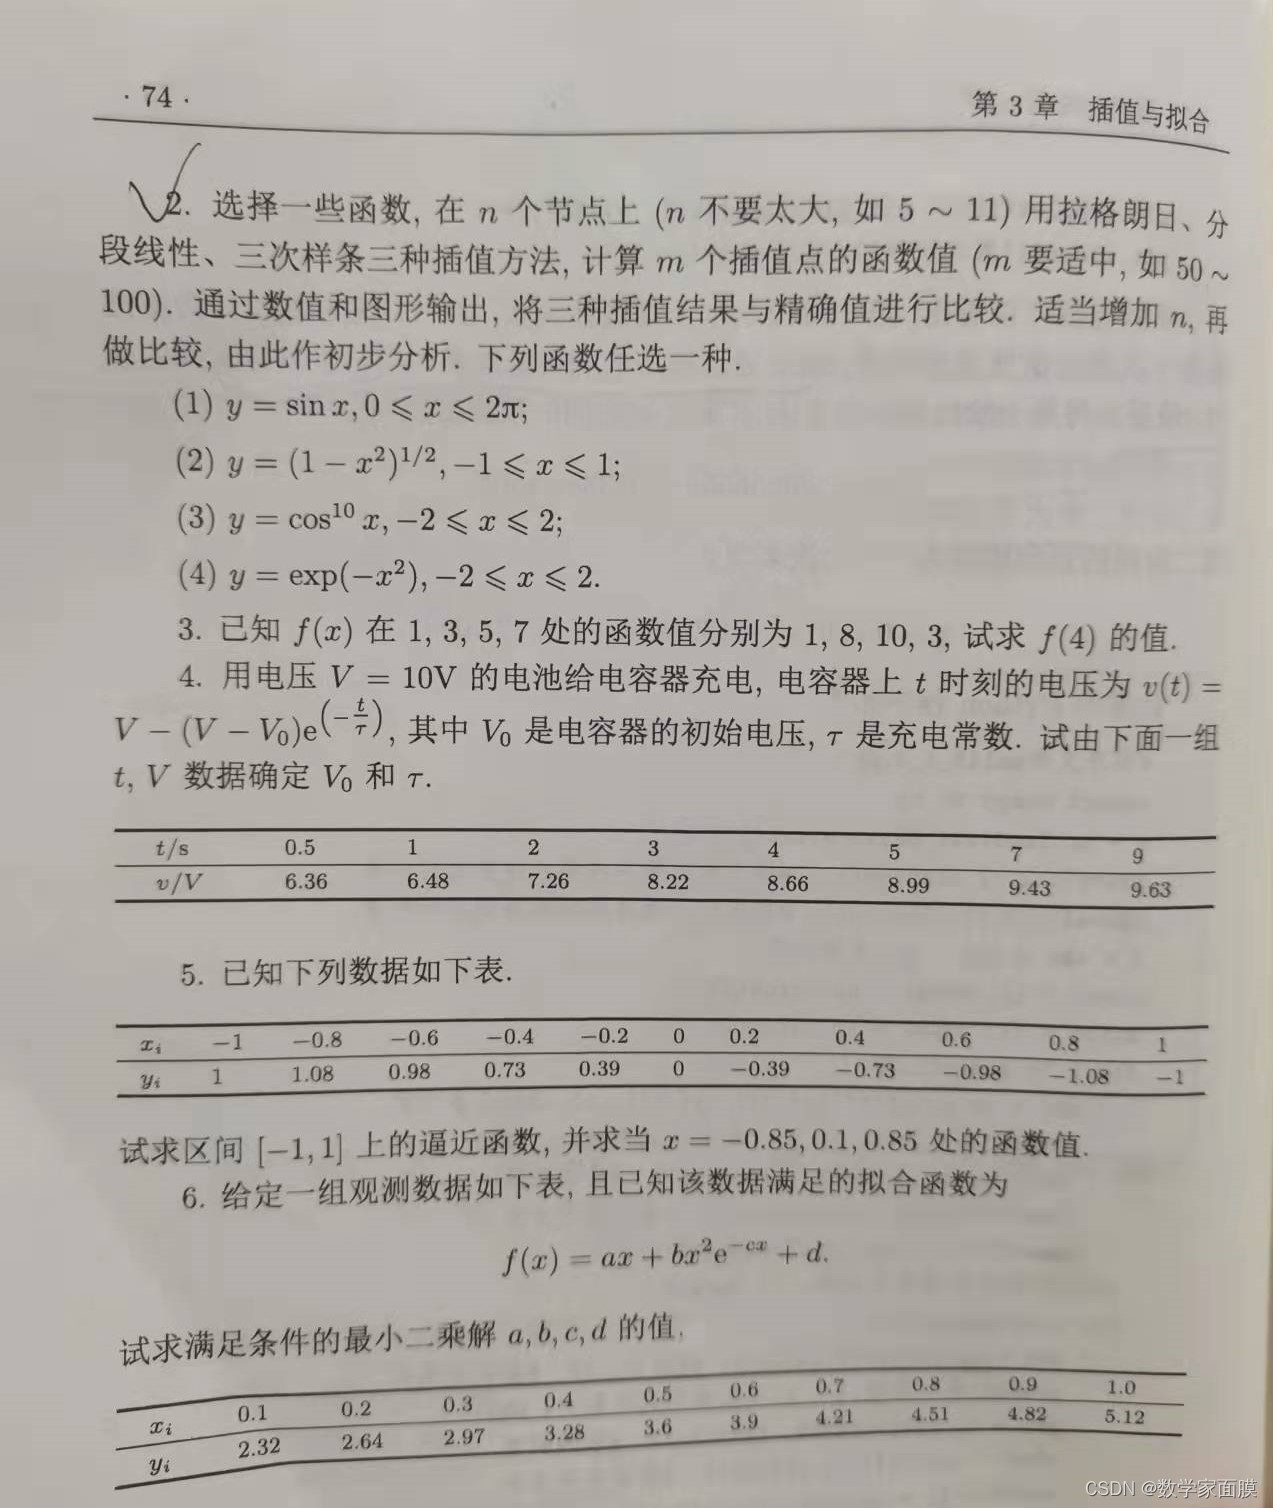 · 74 ·
第 3 章 插值与拟合
2. 选择一些函数, 在 n 个节点上 (n 不要太大, 如 5 ~ 11) 用拉格朗日、分
段线性、三次样条三种插值方法, 计算 m 个插值点的函数值 (m 要适中, 如 50 ~
100). 通过数值和图形输出, 将三种插值结果与精确值进行比较. 适当增加 n, 再
做比较, 由此作初步分析. 下列函数任选一种.
(1) y = sin x, 0 ⩽ x ⩽ 2π;
(2) y = (1 − x²)^{1/2}, −1 ⩽ x ⩽ 1;
(3) y = cos¹⁰ x, −2 ⩽ x ⩽ 2;
(4) y = exp(−x²), −2 ⩽ x ⩽ 2.
3. 已知 f(x) 在 1, 3, 5, 7 处的函数值分别为 1, 8, 10, 3, 试求 f(4) 的值.
4. 用电压 V = 10V 的电池给电容器充电, 电容器上 t 时刻的电压为 v(t) =
V − (V − V₀)e^{(−t/τ)}, 其中 V₀ 是电容器的初始电压, τ 是充电常数. 试由下面一组
t, V 数据确定 V₀ 和 τ.
t/s 0.5 1 2 3 4 5 7 9
v/V 6.36 6.48 7.26 8.22 8.66 8.99 9.43 9.63
5. 已知下列数据如下表.
xᵢ −1 −0.8 −0.6 −0.4 −0.2 0 0.2 0.4 0.6 0.8 1
yᵢ 1 1.08 0.98 0.73 0.39 0 −0.39 −0.73 −0.98 −1.08 −1
试求区间 [−1, 1] 上的逼近函数, 并求当 x = −0.85, 0.1, 0.85 处的函数值.
6. 给定一组观测数据如下表, 且已知该数据满足的拟合函数为
f(x) = ax + bx²e^{−cx} + d.
试求满足条件的最小二乘解 a, b, c, d 的值.
xᵢ 0.1 0.2 0.3 0.4 0.5 0.6 0.7 0.8 0.9 1.0
yᵢ 2.32 2.64 2.97 3.28 3.6 3.9 4.21 4.51 4.82 5.12
CSDN @数学家面膜